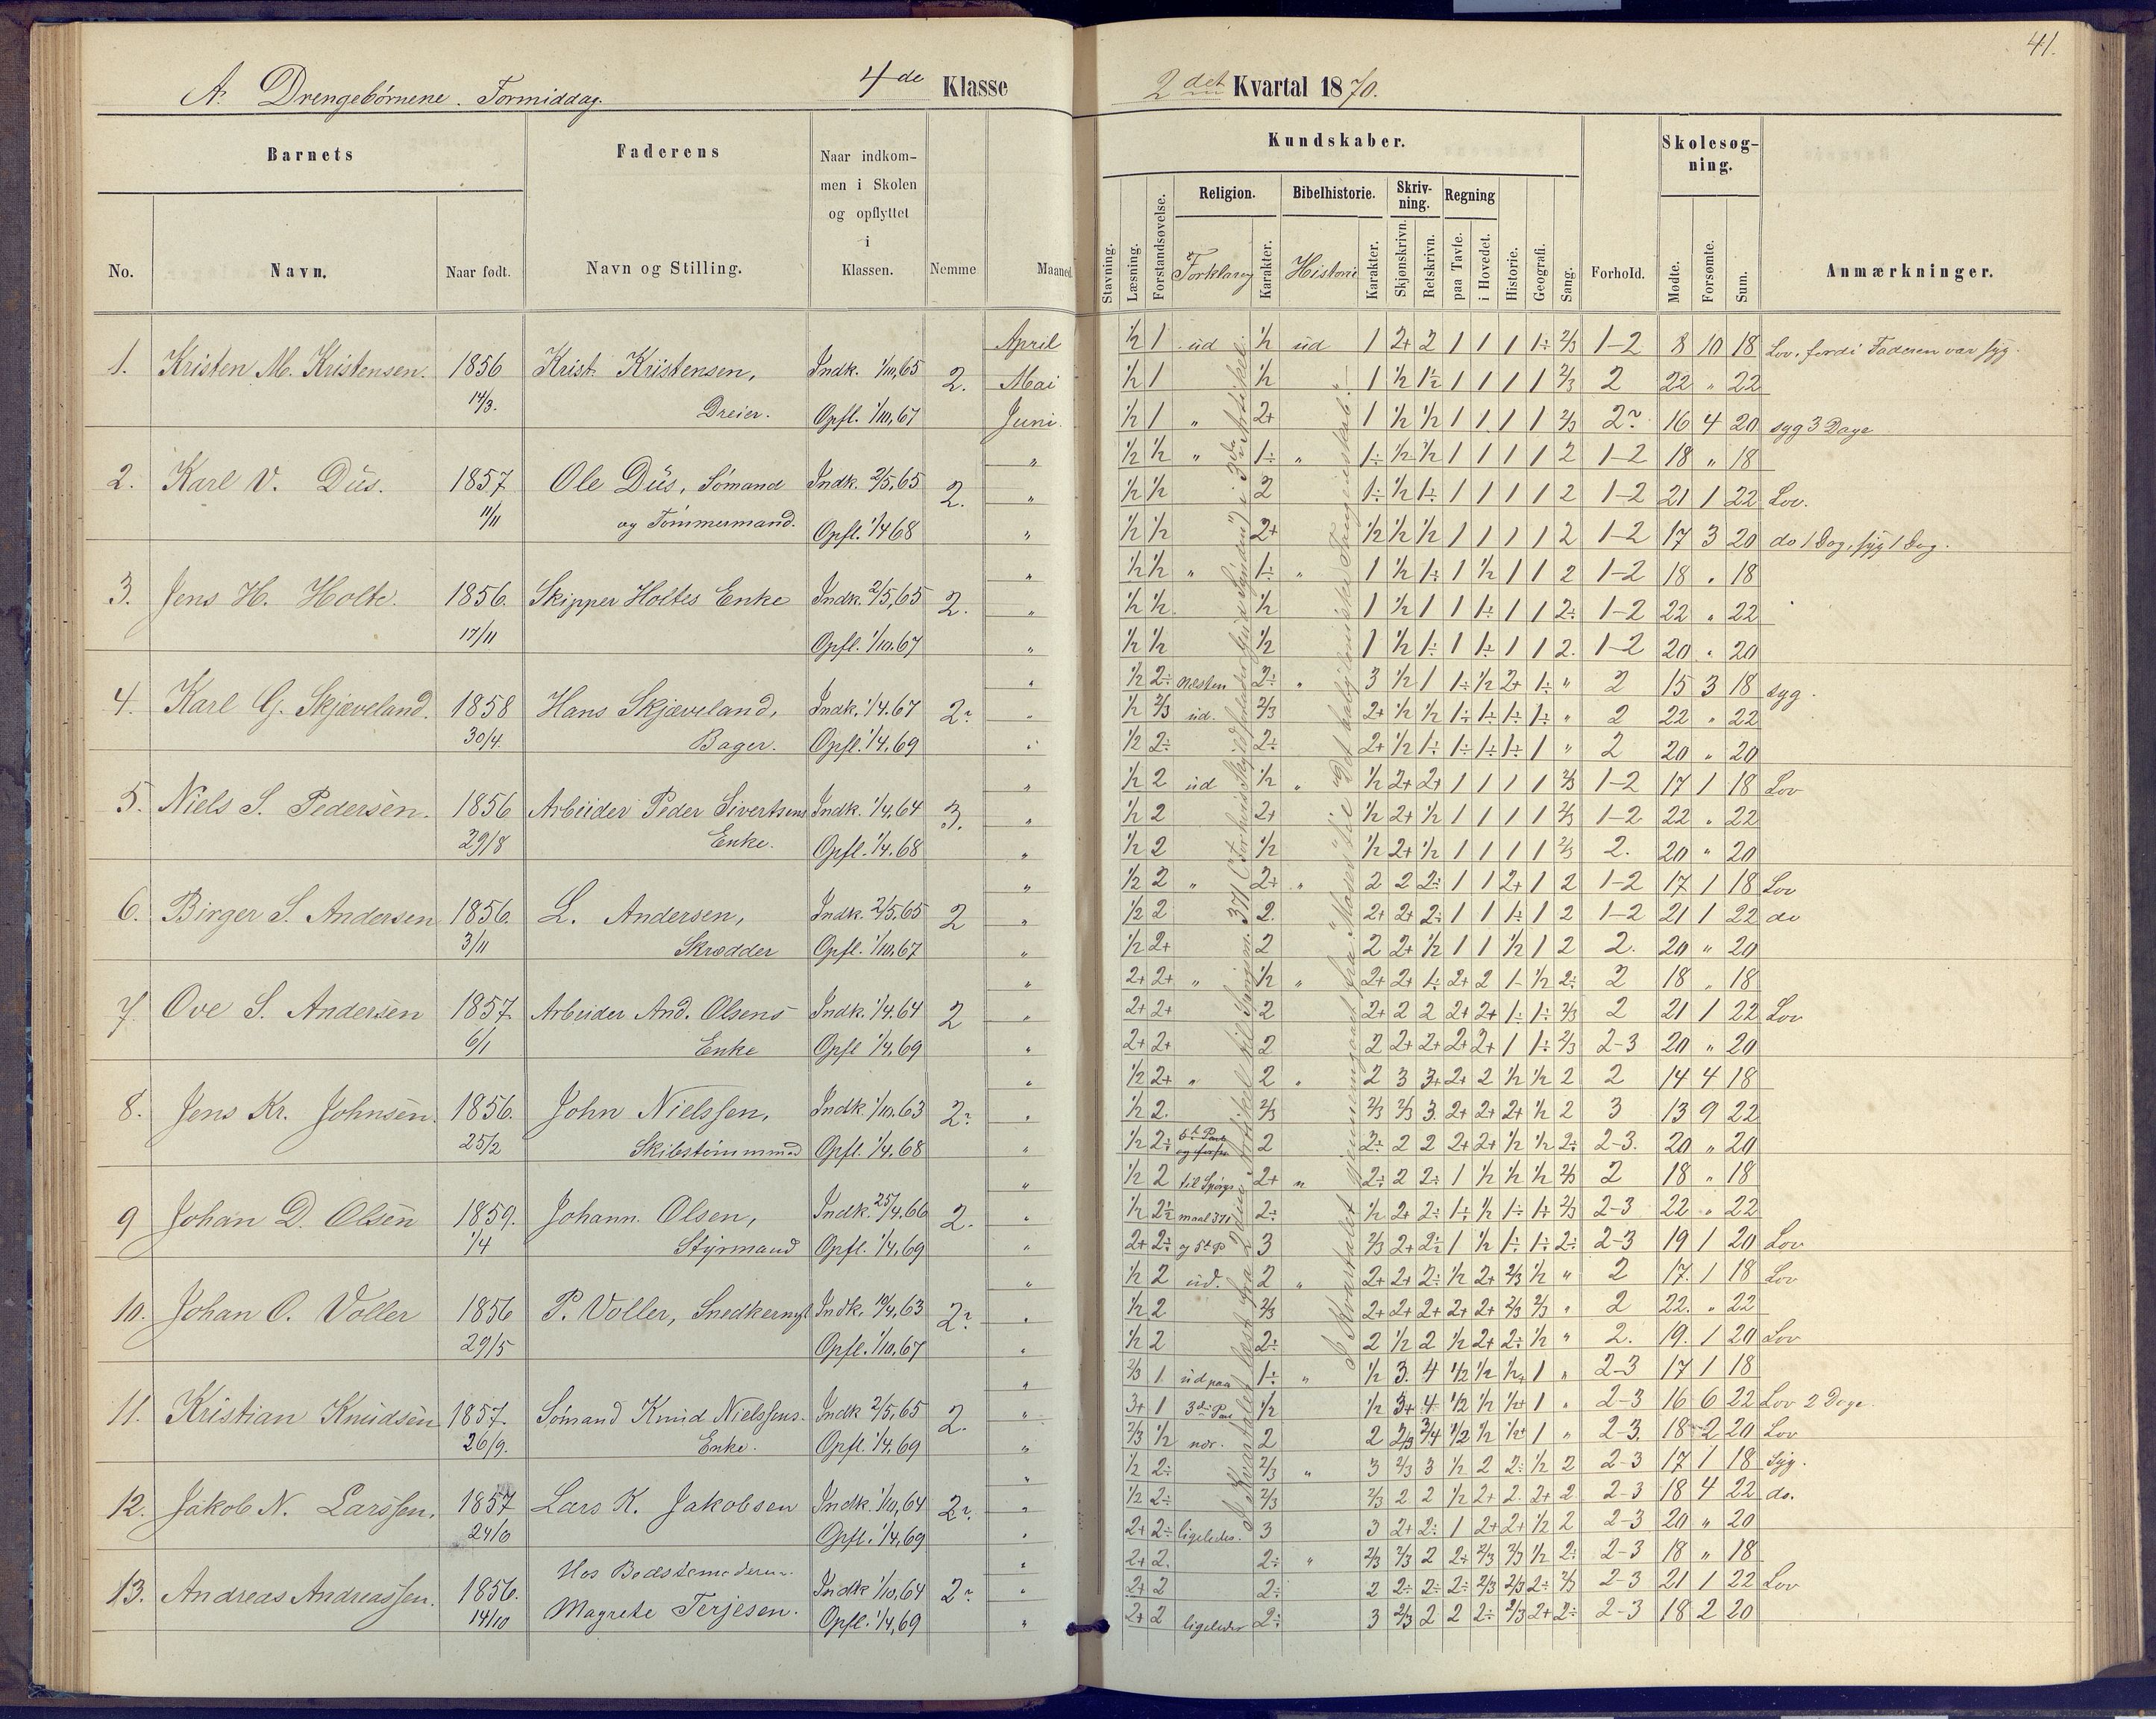 A. Drengebørnene. Formiddag. 4de Klasse
Barnets Faderens Naar indkommen i Skolen og opflyttet i Klassen. Nemme Maaned
No. Navn. Naar født. Navn og Stilling.
April
1. Kristen M. Kristensen. 1856 Krist. Kristensen, Indk. 1/10,65 2. Mai
14/3. Dreier. Opfl. 1/10,67 Juni.
"
2. Karl V. Düs. 1857 Ole Düs, Sømand Indk. 2/5,65 2. "
11/11 og Tømmermand. Opfl. 1/4 68 "
"
3. Jens H. Holte. 1856. Skipper Holtes Enke Indk. 2/5,65 2. "
17/11 Opfl. 1/10.67 "
"
4. Karl G. Skjæveland. 1858 Hans Skjæveland, Indk. 1/4.67 2÷ "
30/4. Bager. Opfl. 1/4,69 "
"
5. Niels S. Pedersen. 1856 Arbeider Peder Sivertsens Indk. 1/4,64 3. "
29/8 Enke. Opfl. 1/4.68 "
"
6. Birger S. Andersen 1856. L. Andersen, Indk. 2/5.65 2 "
3/11 Skrædder Opfl. 1/10,67 "
"
7. Ove S. Andersen 1857 Arbeider And. Olsens Indk. 1/4.64 2 "
6/1 Enke Opfl 1/4,69 "
"
8. Jens Kr. Johnsen. 1856. John Nielssen, Indk 1/10.63 2÷ "
25/2 Skibstømmmd Opfl. 1/4.68 "
"
9 Johan D. Olsen 1859. Johann. Olsen, Indk. 25/4,66 2. "
1/4 Styrmand Opfl. 1/4,69 "
"
10. Johan O. Voller 1856 P. Voller, Snedkermst Indk. 10/4,63 2÷ "
29/5 Opfl. 1/10,67 "
"
11. Kristian Knudsen 1857. Sømand Knud Nielssens Indk 2/5,65 2. "
26/9. Enke. Opfl. 1/4,69 "
"
12. Jakob N. Larssen. 1857 Lars K. Jakobsen Indk 1/10,64 2÷ "
24/10 Opfl. 1/4,69 "
Hos Bedstemoderen "
13. Andreas Andreassen. 1856. Indk 1/10,64 2÷ "
14/10 Magrete Terjesen. Opfl. 1/4,69 "
41.
2det Kvartal 1870.
Kundskaber. Skolesøgning.
Religion. Bibelhistorie. Skrivning. Regning
Stavning. Læsning. Forstandsøvelse. Forklaring Karakter. Historie Karakter. Skjønskrivn. Retskrivn. paa Tavle. i Hovedet. Historie. Geografi. Sang. Forhold. Mødte. Forsømte. Sum. Anmærkninger.
1/2 1 ud 1/2 ud 1 2+ 2 1 1 1 1÷ 2/3 1-2 8 10 18 Lov, fordi Faderen var syg.
1/2 1 1/2 " 1 1/2 1/2 1 1 1 1 2/3 2 22 " 22
1/2 1 " 2+ 1 1/2 1/2 1 1 1 1 2/3 2÷ 16 4 20 syg 3 Dage
1/2 1/2 " 1÷ " 1÷ 1/2 1/2 1 1 1 1 2 1-2 18 " 18
1/2 1/2 2 1÷ 1/2 1÷ 1 1 1 1 2 1-2 21 1 22 Lov.
1/2 1/2 2+ 1/2 1/2 1/2 1 1 1 1 2 1-2 17 3 20 do 1 Dag, syg 1 Dag.
1/2 1/2 " 1÷ " 1 1/2 1÷ 1 1/2 1 1 2 1-2 18 " 18
1/2 1/2 1/2 1 1/2 1 1 1÷ 1 1 2÷ 1-2 22 " 22
1/2 1/2 1/2 1 1/2 1÷ 1 1÷ 1 1 2. 1-2 20 " 20
1/2 2÷ næsten 2÷ " 3 1/2 1 1÷ 1/2 2+ 1÷ " 2 15 3 18 syg.
1/2 2/3 ud. 2/3 2+ 1/2 1/2 1÷ 1÷ 1÷ 1÷ " 2 22 " 22
1/2 2÷ 2÷ 2+ 1/2 1÷ 1÷ 1÷ 1÷ 1 " 2 20 " 20
1/2 2 ud 1/2 " 1/2 2+ 2+ 1 1 1 1 2/3 1-2 17 1 18 Lov
1/2 2 2+ 1/2 2+ 1/2 1 1 1 1 2/3 1-2 22 " 22
1/2 2 1/2 1/2 2+ 1/2 1 1 1 1 2/3 2. 20 " 20
1/2 2 " 2+ " 2 2 2÷ 1 1 2+ 1 2 1-2 17 1 18 Lov
1/2 2 2. 2+ 2+ 2÷ 1 1 1÷ 1 2 1-2 21 1 22 do
1/2 2+ 2 2 2+ 1/2 1 1 1/2 1 2 2. 20 " 20
2+ 2+ " 1/2 " 2+ 2+ 1÷ 2+ 2 1- 1/2 2÷ 2 18 " 18
2+ 2+ 2 2+ 2 2 2+ 2+ 1÷ 1÷ 2/3 2 21 1 22 Lov
2+ 2+ 2 2 2+ 2+ 2+ 2+ 1 1÷ 2/3 2-3 20 " 20
1/2 2+ " 2 " 2 3 3+ 2+ 2 1/2 1/2 2 2 14 4 18
1/2 2. 2/3 2/3 2/3 3. 2+ 2+ 2+ 1/2 2 3 13 9 22
1/2 2÷ 2 2÷ 2 2 2+ 2+ 1/2 1/2 2÷ 2-3. 20 " 20
1/2 2 til Spørgs 2+ " 2÷ 2 2÷ 1 1/2 1/2 1/2 2/3 2 18 " 18
1/2 2÷ maal 371 2÷ 1/2 2+ 2÷ 1÷ 1/2 1÷ 1÷ 2/3 2-3 22 " 22
2+ 2÷ og 5t P 3 2/3 2+ 2÷ 1 1/2 1÷ 1÷ 2÷ 2-3 19 1 20 Lov
1/2 2 ud. 2 " 2+ 2+ 2÷ 1/2 2+ 2/3 1/2 " 2 17. 1 18 Lov
1/2 2 2/3 2+ 2+ 2+ 2+ 2+ 2/3 2/3 " 2 22. " 22
1/2 2 2÷ 2 1/2 2 1/2 2+ 2÷ 1/2 " 2. 19. 1 20 Lov
2/3 1. ud paa 1÷ " 1/2 3. 4 1/2 1/2 1/2+ 1 " 2-3 17 1 18
3+ 1 3die Par 1/2 1/2 3+ 4 1/2 1/2 1/2+ 1 " 2-3 16 6 22 Lov 2 Dage.
2/3 1/2 nær. 2 2 2/3 3/4 1/2 1/2 1/2+ 1 " 2-3. 18 2 20 Lov
1/2 2÷ 2/3 " 3 2/3 3 1/2 2 2÷ 1/2 2 2-3 17 1 18 Syg.
1/2 2÷ 2/3 2/3 2 2 1/2 2+ 2. 2+ 2 2-3 18 4 22 do.
2+ 2÷ ligeledes. 3 3 2+ 2÷ 1 2+ 2+ 1/2 2 2-3 20 " 20
2+ 2. 2÷ " 2/3 2/3 2 2+ 2/3 2/3 1/2 2÷ 2-3 18 " 18
2+ 2 2÷ 2 2÷ 2÷ 2÷ 2/3 2/3 2÷ 2/3 2-3 21 1 22 Lov
2+ 2 ligeledes 2÷ 3 2/3 2 2 2÷ 2/3 2+ 2÷ 2-3 18 2 20
I Kvartalet læst fra 2den Artikel til Spørgsm. 371 (Forhvis Skyld forlader Gud Synden) i 3die Artikel.
I Kvartalet gjennemgaaet fra "Moses" til "Det babyloniske Fangenskab."